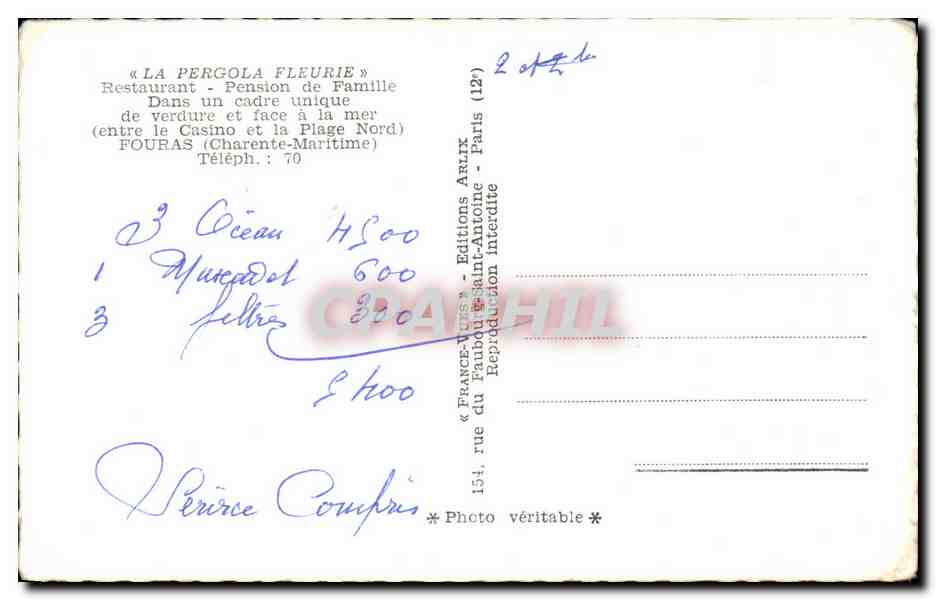 « LA PERGOLA FLEURIE »
Restaurant - Pension de Famille
Dans un cadre unique
de verdure et face à la mer
(entre le Casino et la Plage Nord)
FOURAS (Charente-Maritime)
Téléph. : 70
3 Océan 4500
1 Muscadet 600
3 filtres 300
5400
Service Compris
« FRANCE-VUES » - Editions ARLIX
154, rue du Faubourg-Saint-Antoine - Paris (12e)
Reproduction interdite
* Photo véritable *
CPAPHIL